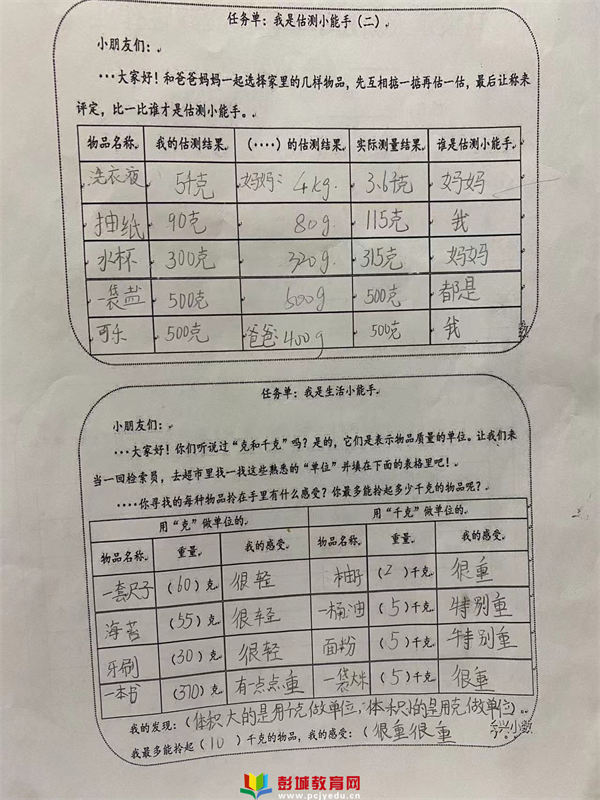 任务单：我是估测小能手（二）
小朋友们：
···大家好！和爸爸妈妈一起选择家里的几样物品，先互相掂一掂再估一估，最后让称来
评定，比一比谁才是估测小能手。
物品名称 我的估测结果 （····）的估测结果 实际测量结果 谁是估测小能手
洗衣液 5千克 妈妈： 4kg. 3.6千克 妈妈
抽纸 90克 80g 115克 我
水杯 300克 320g. 315克 妈妈
一袋盐 500克 500g 500克 都是
可乐 500克 爸爸 400g 500克 我
任务单：我是生活小能手。
小朋友们：
···大家好！你们听说过“克和千克”吗？是的，它们是表示物品质量的单位。让我们来
当一回检索员，去超市里找一找这些熟悉的“单位”并填在下面的表格里吧！
····你寻找的每种物品拎在手里有什么感受？你最多能拎起多少千克的物品呢？
用“克”做单位的 用“千克”做单位的
物品名称 重量 我的感受 物品名称 重量 我的感受
一套尺子 （60）克 很轻 柚子 （2）千克 很重
海苔 （55）克 很轻 一桶油 （5）千克 特别重
牙刷 （30）克 很轻 面粉 （5）千克 特别重
一本书 （370）克 有一点点重 一袋大米 （5）千克 很重
我的发现：（体积大的是用千克做单位，体积小的是用克做单位）
我最多能拎起（10）千克的物品，我的感受：（很重很重
彭城教育网
www.pcjyedu.cn